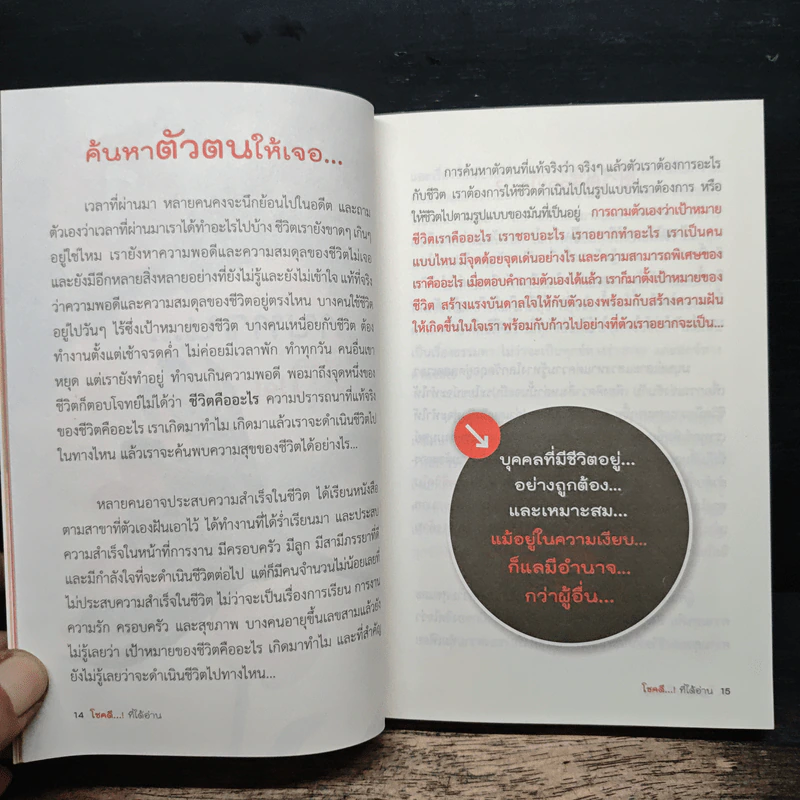 ค้นหาตัวตนให้เจอ...
เวลาที่ผ่านมา หลายคนคงจะนึกย้อนไปในอดีต และถาม
ตัวเองว่าเวลาที่ผ่านมาเราได้ทำอะไรไปบ้าง ชีวิตเรายังขาดๆ เกินๆ
อยู่ใช่ไหม เรายังหาความพอดีและความสมดุลของชีวิตไม่เจอ
และยังมีอีกหลายสิ่งหลายอย่างที่ยังไม่รู้และยังไม่เข้าใจ แท้ที่จริง
ว่าความพอดีและความสมดุลของชีวิตอยู่ตรงไหน บางคนใช้ชีวิต
อยู่ไปวันๆ ไร้ซึ่งเป้าหมายของชีวิต บางคนเหนื่อยกับชีวิต ต้อง
ทำงานตั้งแต่เช้าจรดค่ำ ไม่ค่อยมีเวลาพัก ทำทุกวัน คนอื่นเขา
หยุด แต่เรายังทำอยู่ ทำจนเกินความพอดี พอมาถึงจุดหนึ่งของ
ชีวิตก็ตอบโจทย์ไม่ได้ว่า ชีวิตคืออะไร ความปรารถนาที่แท้จริง
ของชีวิตคืออะไร เราเกิดมาทำไม เกิดมาแล้วเราจะดำเนินชีวิตไป
ในทางไหน แล้วเราจะค้นพบความสุขของชีวิตได้อย่างไร...
หลายคนอาจประสบความสำเร็จในชีวิต ได้เรียนหนังสือ
ตามสาขาที่ตัวเองฝันเอาไว้ ได้ทำงานที่ได้ร่ำเรียนมา และประสบ
ความสำเร็จในหน้าที่การงาน มีครอบครัว มีลูก มีสามีภรรยาที่ดี
และมีกำลังใจที่จะดำเนินชีวิตต่อไป แต่ก็มีคนจำนวนไม่น้อยเลยที่
ไม่ประสบความสำเร็จในชีวิต ไม่ว่าจะเป็นเรื่องการเรียน การงาน
ความรัก ครอบครัว และสุขภาพ บางคนอายุขึ้นเลขสามแล้วยัง
ไม่รู้เลยว่า เป้าหมายของชีวิตคืออะไร เกิดมาทำไม และที่สำคัญ
ยังไม่รู้เลยว่าจะดำเนินชีวิตไปทางไหน...
14 โชคดี...! ที่ได้อ่าน
การค้นหาตัวตนที่แท้จริงว่า จริงๆ แล้วตัวเราต้องการอะไร
กับชีวิต เราต้องการให้ชีวิตดำเนินไปในรูปแบบที่เราต้องการ หรือ
ให้ชีวิตไปตามรูปแบบของมันที่เป็นอยู่ การถามตัวเองว่าเป้าหมาย
ชีวิตเราคืออะไร เราชอบอะไร เราอยากทำอะไร เราเป็นคน
แบบไหน มีจุดด้อยจุดเด่นอย่างไร และความสามารถพิเศษของ
เราคืออะไร เมื่อตอบคำถามตัวเองได้แล้ว เราก็มาตั้งเป้าหมายของ
ชีวิต สร้างแรงบันดาลใจให้กับตัวเองพร้อมกับสร้างความฝัน
ให้เกิดขึ้นในใจเรา พร้อมกับก้าวไปอย่างที่ตัวเราอยากจะเป็น...
บุคคลที่มีชีวิตอยู่...
อย่างถูกต้อง...
และเหมาะสม...
แม้อยู่ในความเงียบ...
ก็แลมีอำนาจ...
กว่าผู้อื่น...
โชคดี...! ที่ได้อ่าน 15